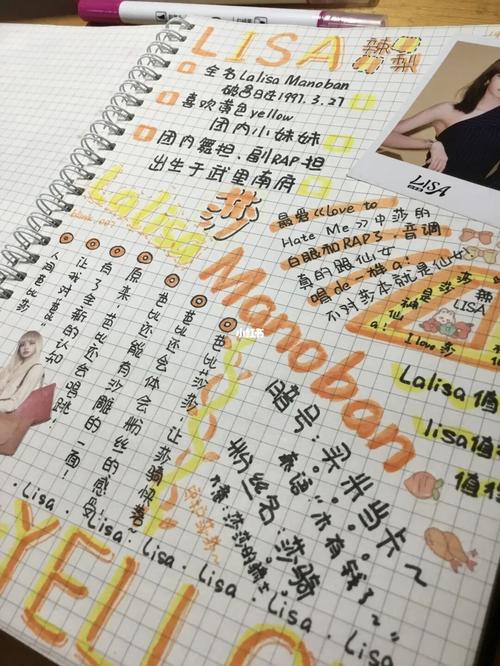 LISA 辣梨
全名Lalisa Manoban
破蛋日在1997.3.27
喜欢黄色yellow
团内小妹妹
团内舞担,副RAP担
出生于武里南府
LISA
Lalisa 莎
Manoban
最爱《love to
Hate Me》中莎的
白眼和RAP了,音调
真的跟仙女
唱de一样a!
不对莎本就是仙女
LISA
神仙
I love 莎
Lalisa 值
lisa值
值
芭比莎莎,让莎骑保卷
芭比还会体会粉丝的感受
原来芭比还能有沙雕的一面!
有了芭比还会唱跳!
让我对
全新的认知
人间芭比莎
暗号:买半当卡~
粉丝名:莎骑
小红书
. Lisa . Lisa . Lisa . Lisa . Lisa . Lisa . Lisa
YELLO